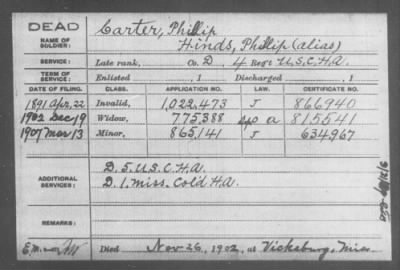 DEAD
NAME OF SOLDIER: Carter, Phillip
Hinds, Phillip (alias)
SERVICE: Late rank, Co. D 4 Reg't U.S.C.H.A.
TERM OF SERVICE: Enlisted , 1 Discharged , 1
DATE OF FILING. CLASS. APPLICATION NO. LAW. CERTIFICATE NO.
1891 Apr. 22 Invalid, 1,022,473 J 866940
1902 Dec 19 Widow, 775,388 a 815,541
1907 Mar 13 Minor, 865,141 J 634,967
ADDITIONAL SERVICES: D. 5. U.S.C.H.A.
D. 1. Miss. Cold H.A.
REMARKS:
Died Nov 26, 1902, at Vicksburg, Miss.